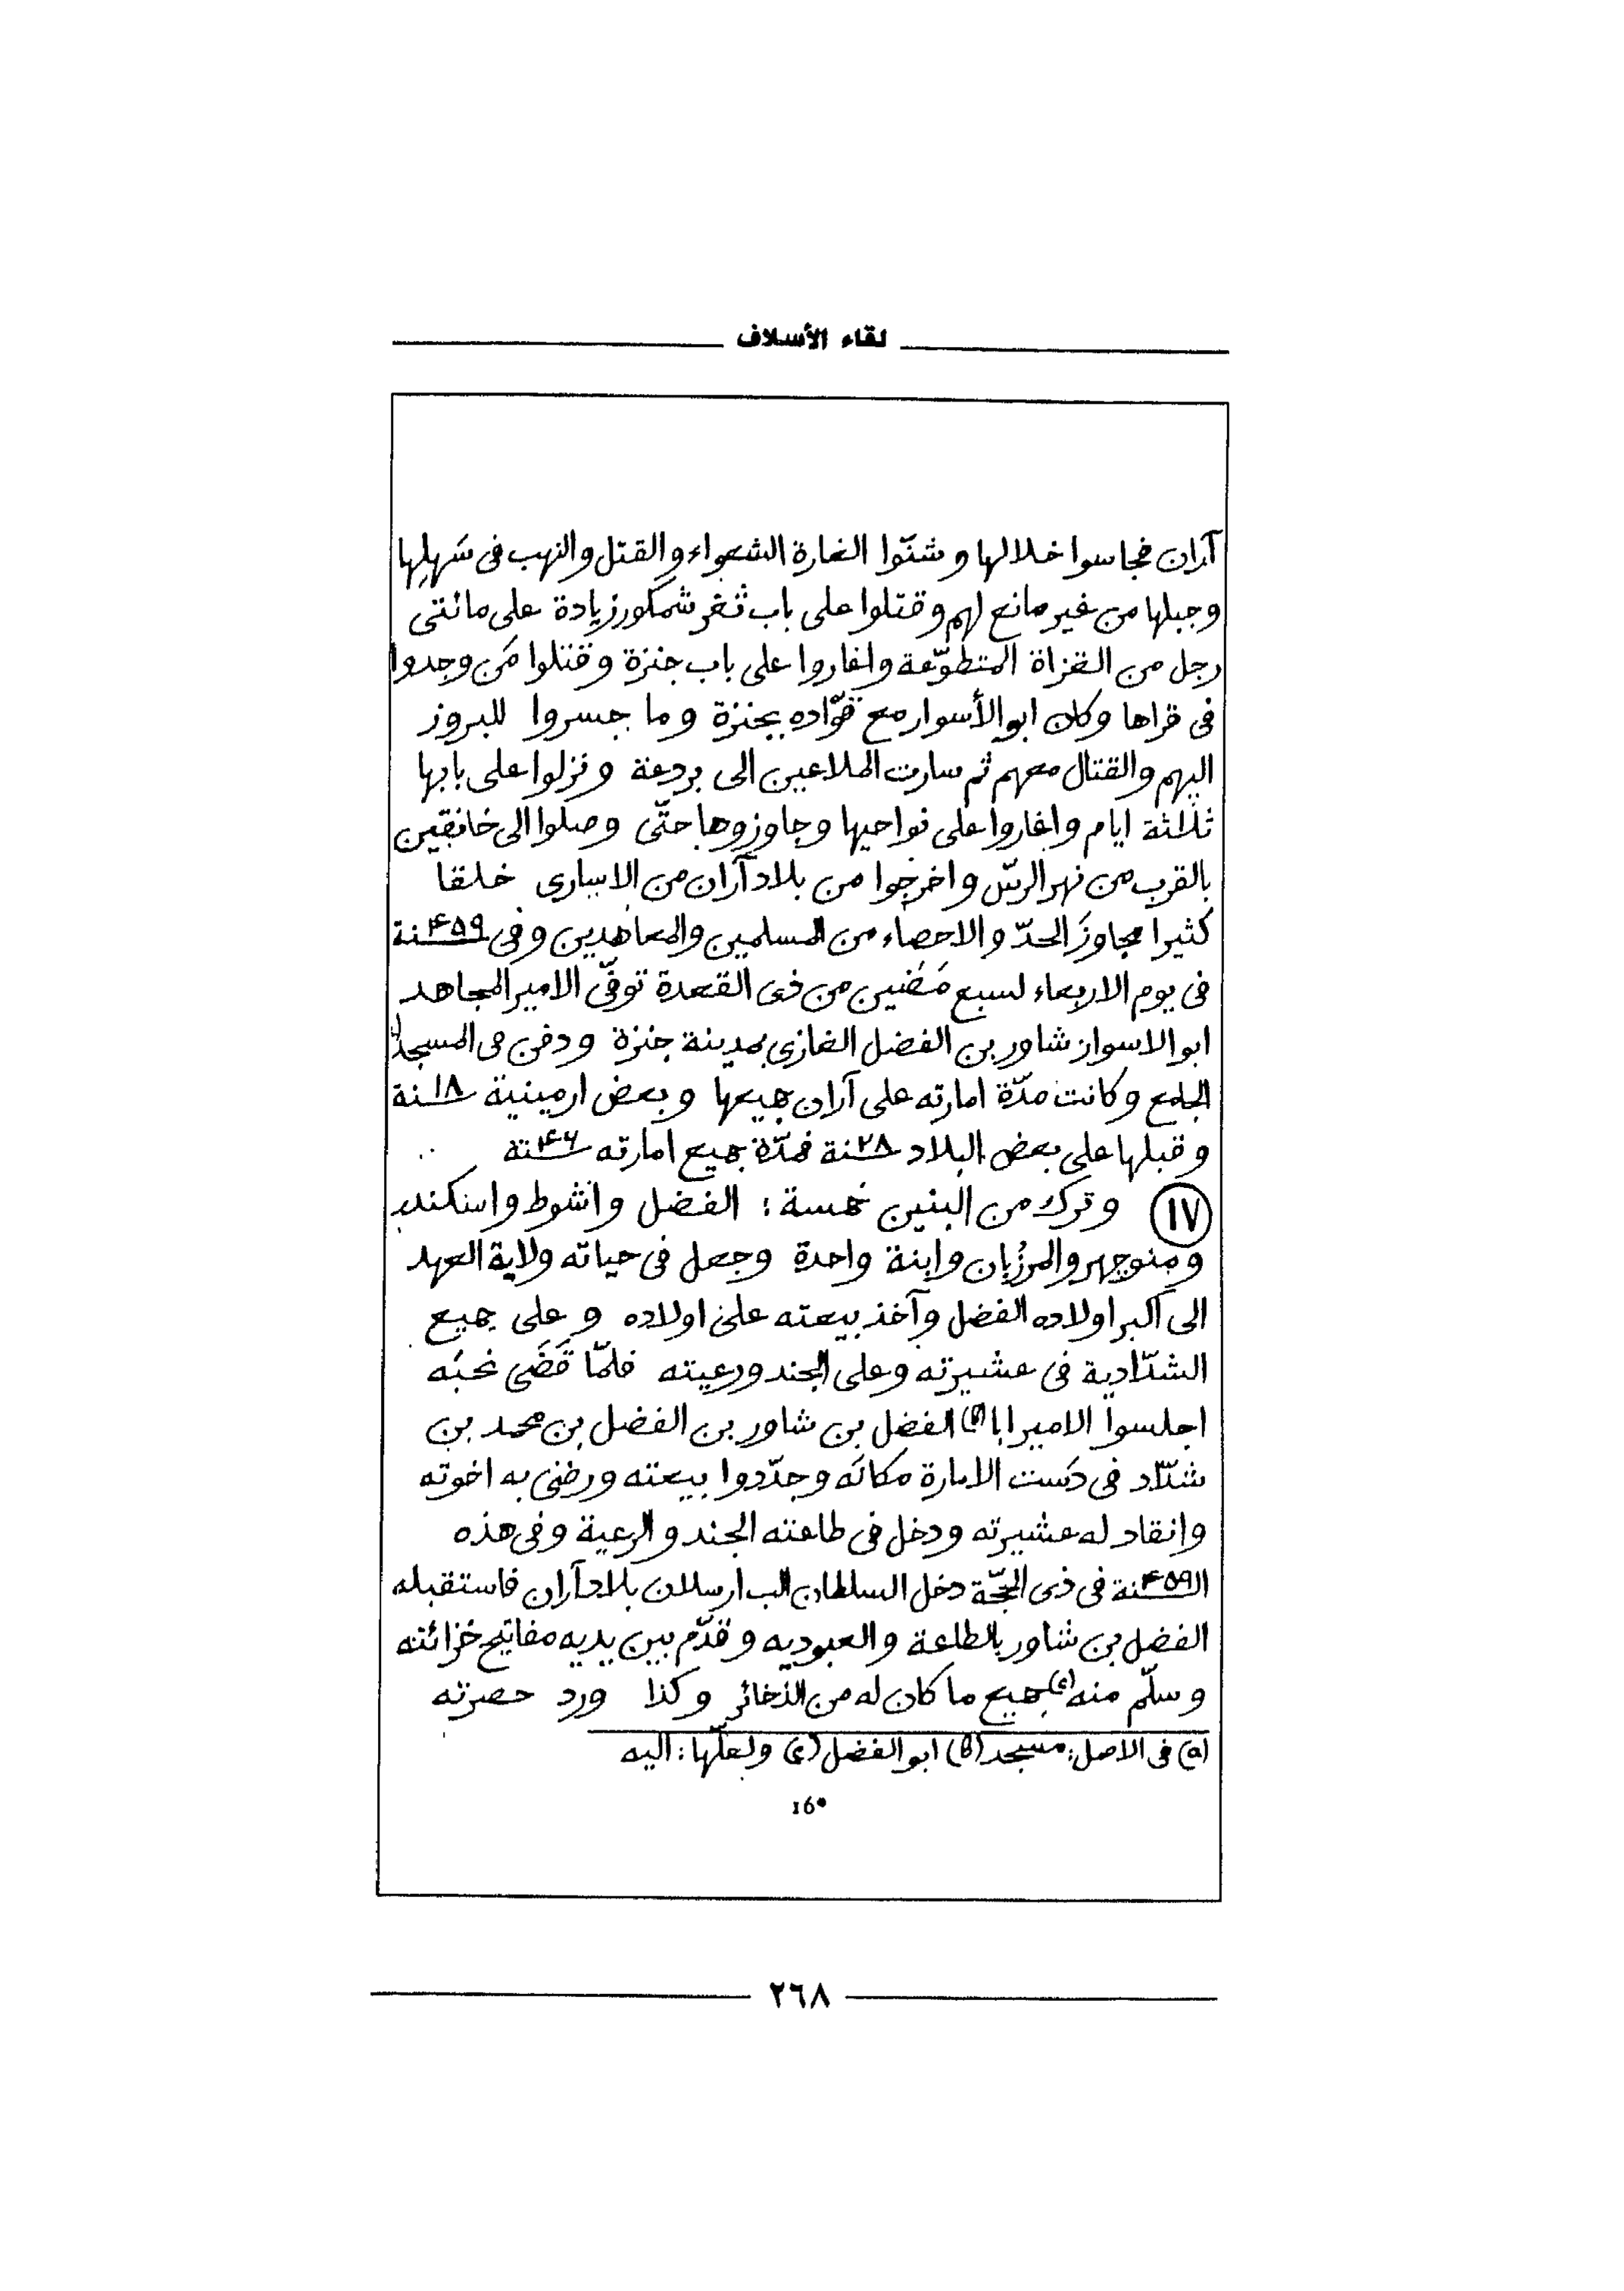 لقاء الأسلاف
آران فجاسوا خلالها و شنّوا الغارة الشعواء والقتل والنهب فى سَهلِها
وجبلها من غير مانع لهم و قتلوا على باب ثغر شمكور زيادة على مائتى
رجل من الغزاة المتطوّعة واغاروا على باب جنزة و قتلوا مَن وجدوا
فى قراها وكان ابو الأسوار مع قوّاده بجنزة وما جسروا للبروز
اليهم والقتال معهم ثم سارت الملاعين الى بردعة ونزلوا على بابها
ثلثة ايام واغاروا على نواحيها وجاوزوها حتّى وصلوا الى خانقين
بالقرب من نهر الرسّ واخرجوا من بلاد آران من الاسارى خلقا
كثيرا مجاوزَ الحدّ والاحصاء من المسلمين والمعاهدين وفى سنة ۴۵۹
فى يوم الاربعاء لسبع مَضَين من ذى القعدة توفّى الامير المجاهد
ابو الاسوار شاور بن الفضل الغازى بمدينة جنزة ودفن فى المسجد(a)
الجامع وكانت مدّة امارته على آران جميعها وبعض ارمينية ١٨ سنة
وقبلها على بعض البلاد ٢٨ سنة فمدّة جميع امارته ۴۶ سنة
(١٧) وترك من البنين خمسة : الفضل وانشوط واسكندر
ومنوجهر والمرزُبان وابنة واحدة وجعل فى حياته ولاية العهد
الى اكبر اولاده الفضل وآخذ بيعته على اولاده وعلى جميع
الشدّادية فى عشيرته وعلى الجند ورعيته فلمّا قَضَى نحبَه
اجلسوا الامير ابا(b) الفضل بن شاور بن الفضل بن محمد بن
شدّاد فى دَست الامارة مكانَه وجدّدوا بيعته ورضى به اخوته
وانقاد له عشيرته ودخل فى طاعته الجند والرعية وفى هذه
السنة ۴۵۹ فى ذى الحجّة دخل السلطان الب ارسلان بلاد آران فاستقبله
الفضل بن شاور بالطاعة والعبوديه وقدّم بين يديه مفاتيح خزائنه
وسلّم منه(c) جميع ما كان له من الذخائر وكذا ورد حضرته
(a) فى الاصل: مسجد (b) ابو الفضل (c) ولعلّها: اليه
16*
٢٦٨